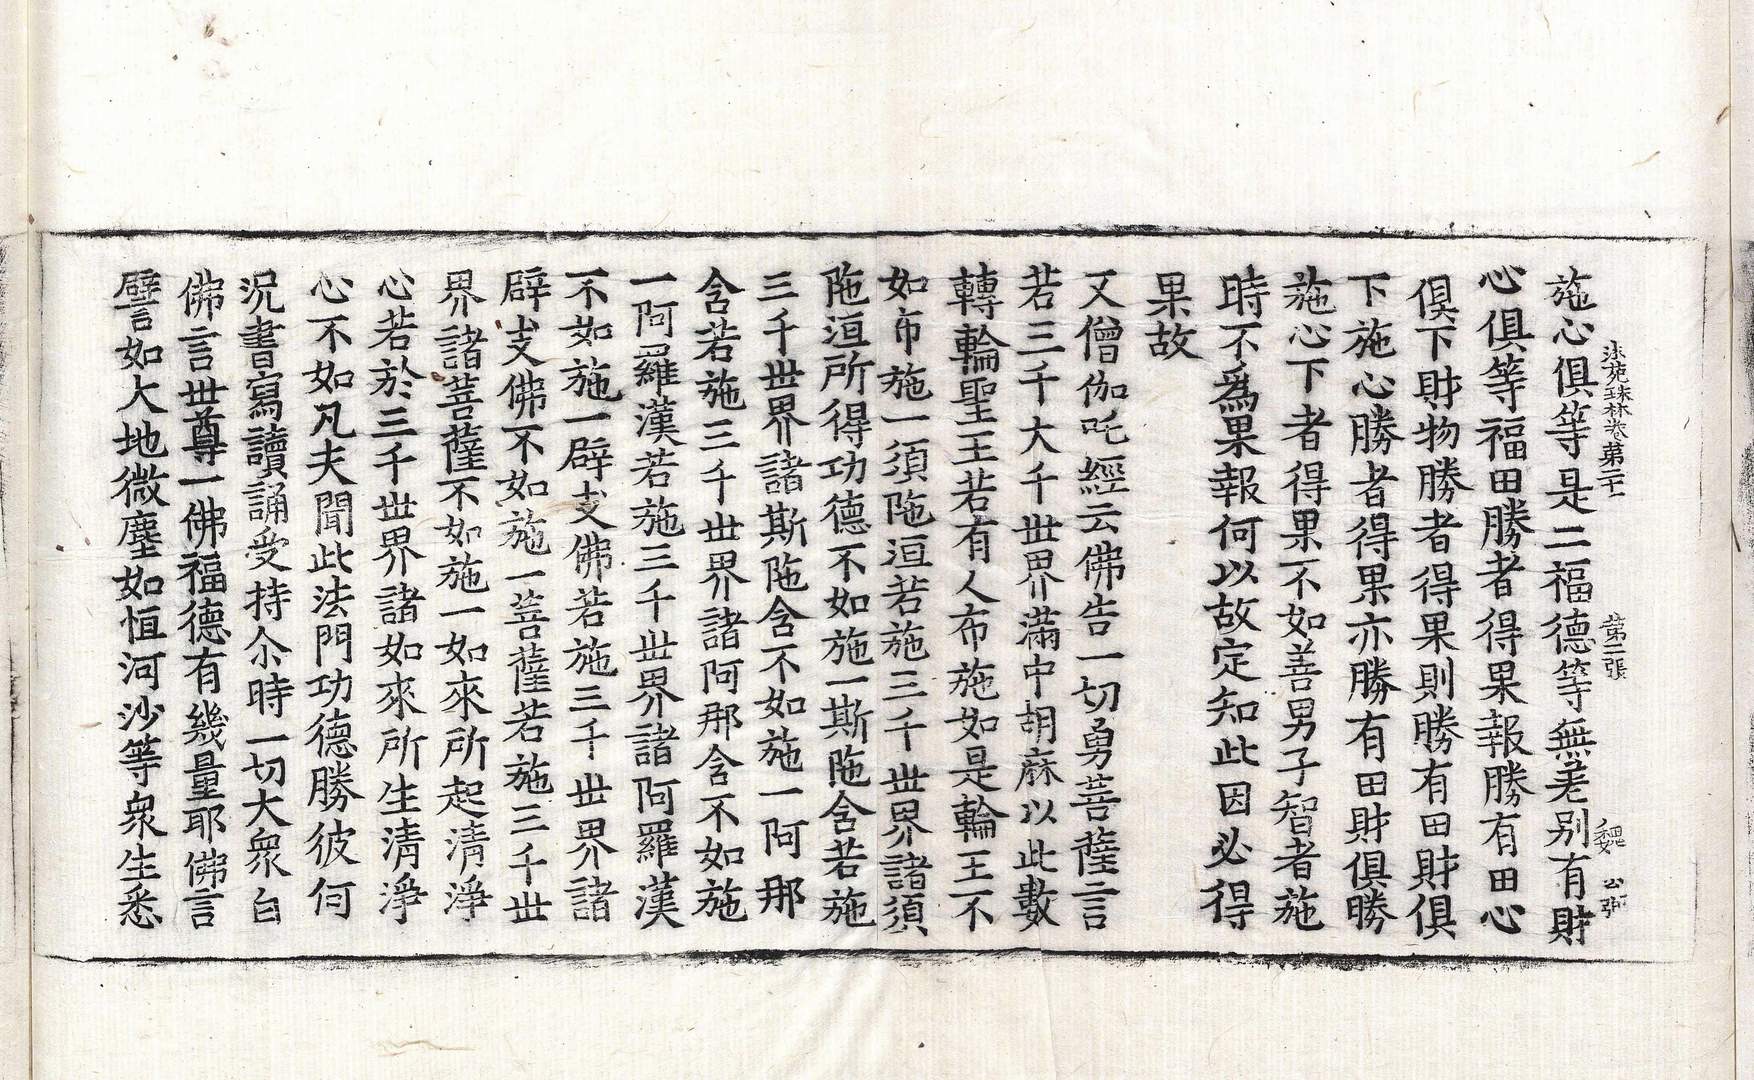 法苑珠林卷第二十一 第二張 魏
施心俱等是二福德等無差别有財
心俱等福田勝者得果報勝有田心
俱下財物勝者得果則勝有田財俱
下施心勝者得果亦勝有田財俱勝
施心下者得果不如善男子智者施
時不爲果報何以故定知此因必得
果故
又僧伽吒經云佛告一切勇菩薩言
若三千大千世界滿中胡麻以此數
轉輪聖王若有人布施如是輪王不
如布施一須陁洹若施三千世界諸須
陁洹所得功德不如施一斯陁含若施
三千世界諸斯陁含不如施一阿那
含若施三千世界諸阿那含不如施
一阿羅漢若施三千世界諸阿羅漢
不如施一辟支佛若施三千世界諸
辟支佛不如施一菩薩若施三千世
界諸菩薩不如施一如來所起清淨
心若於三千世界諸如來所生清淨
心不如凡夫聞此法門功德勝彼何
況書寫讀誦受持尒時一切大衆白
佛言世尊一佛福德有幾量耶佛言
譬如大地微塵如恒河沙等衆生悉